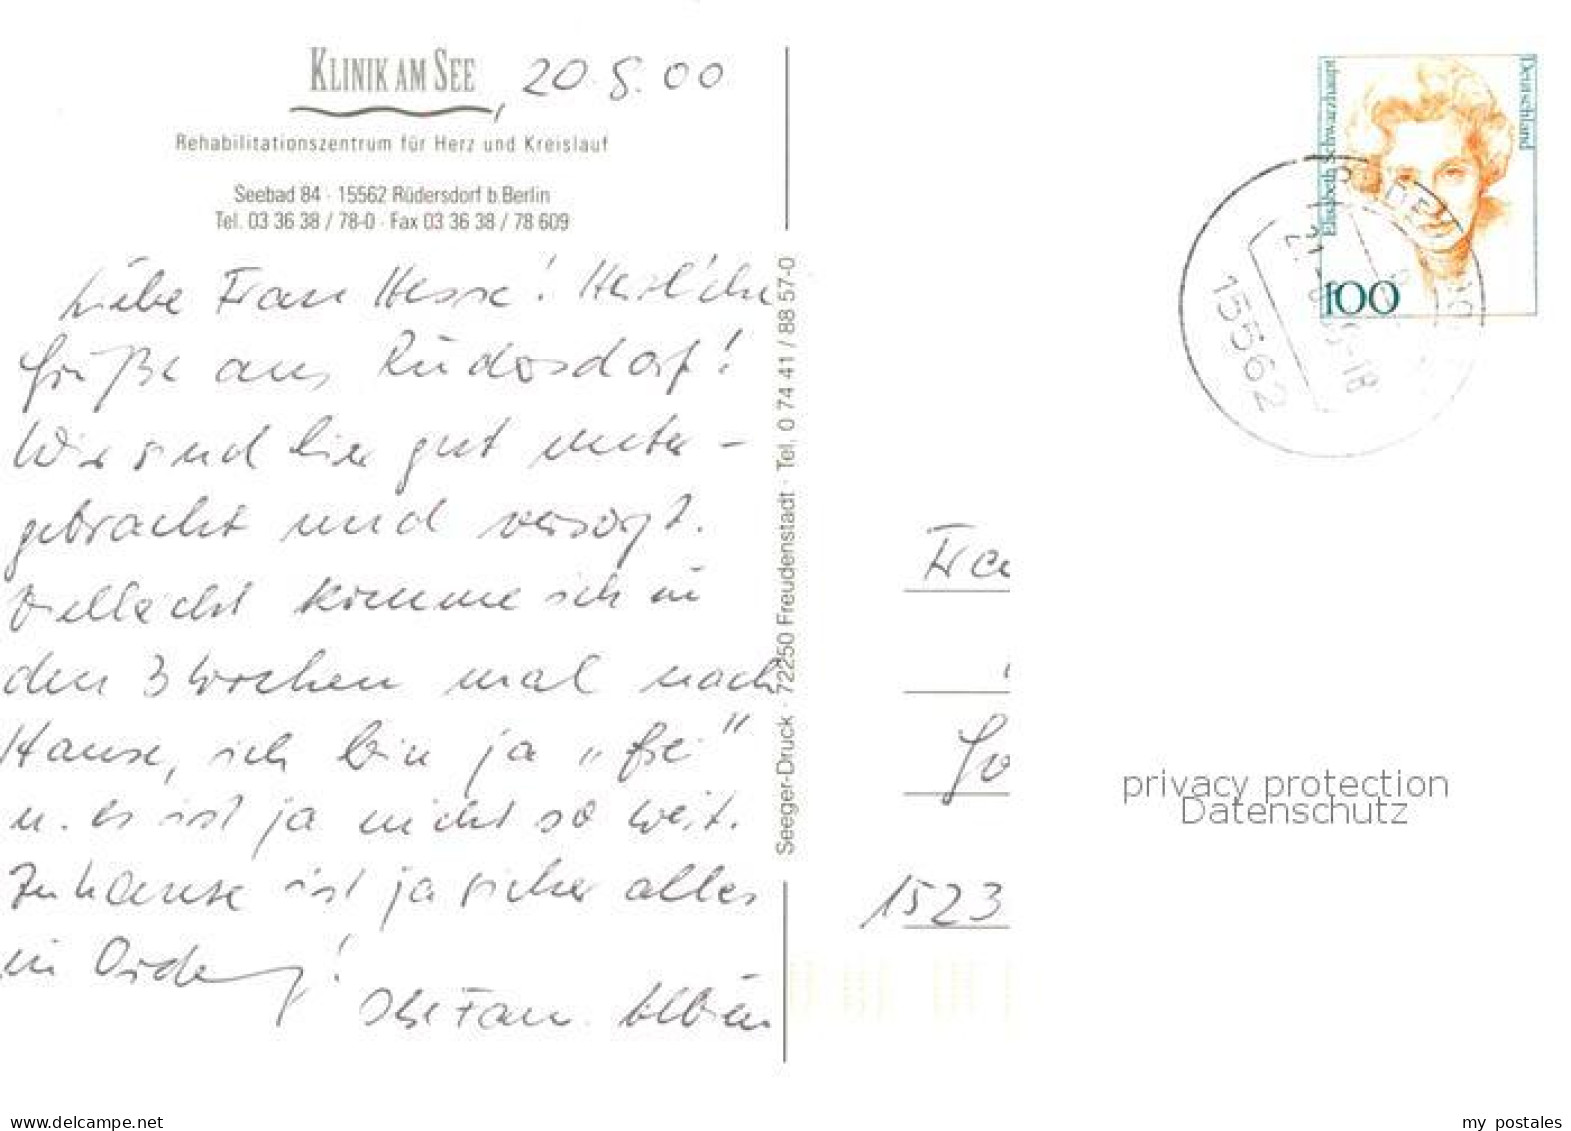 KLINIK AM SEE, 20.8.00
Rehabilitationszentrum für Herz und Kreislauf
Seebad 84 · 15562 Rüdersdorf b. Berlin
Tel. 03 36 38 / 78-0 · Fax 03 36 38 / 78 609
Liebe Frau Hesse! Herzliche
Grüße aus Rüdersdorf!
Wir sind hier gut unter-
gebracht und versorgt.
Vielleicht komme ich in
den 3 Wochen mal nach
Hause, ich bin ja „frei"
u. es ist ja nicht so weit.
Zuhause ist ja sicher alles
in Ordnung!
Ihre Fam.
Seeger-Druck · 72250 Freudenstadt · Tel. 0 74 41 / 88 57-0
Deutschland
Elisabeth Schwarzhaupt
100
15562
-18
Frau
1523
privacy protection
Datenschutz
www.delcampe.net
my_postales